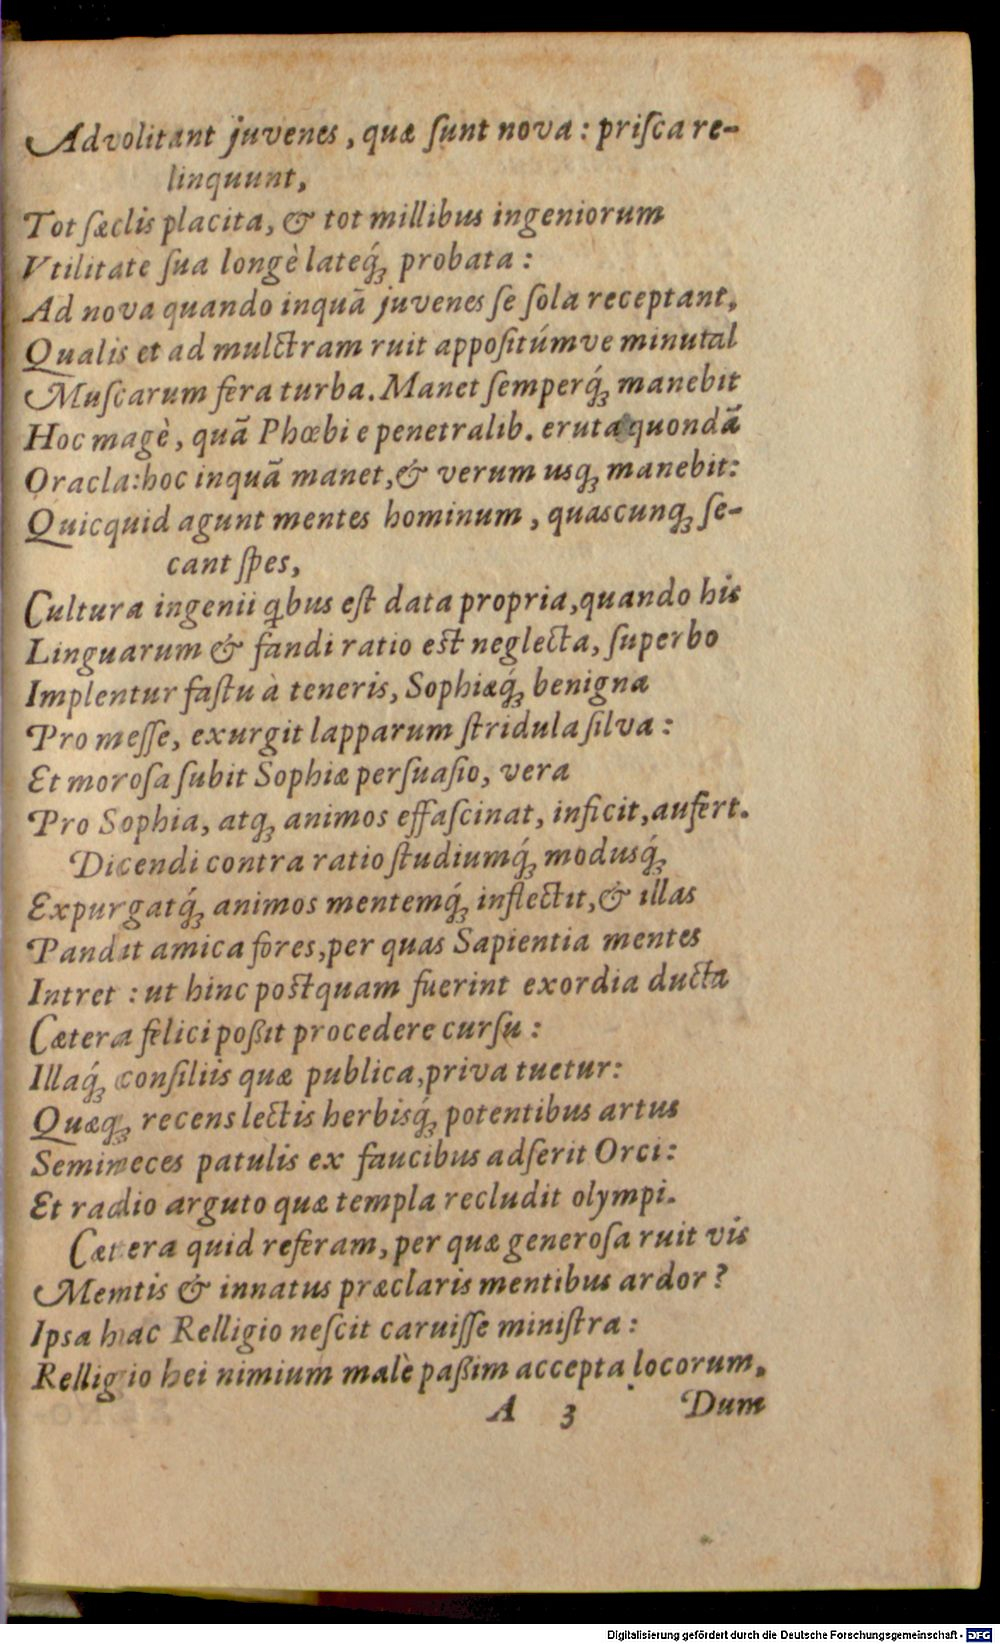 Advolitant juvenes, quæ ſunt nova: priſca re-
linquunt,
Tot ſæclis placita, & tot millibus ingeniorum
Vtilitate ſua longè lateq́ꝫ probata:
Ad nova quando inquã juvenes ſe ſola receptant,
Qualis et ad mulctram ruit appoſitúmve minutal
Muſcarum fera turba. Manet ſemperq́ꝫ manebit
Hoc magè, quã Phœbi e penetralib. eruta quondã
Oracla: hoc inquã manet, & verum usqꝫ manebit:
Quicquid agunt mentes hominum, quascunqꝫ ſe-
cant ſpes,
Cultura ingenii qͥbus eſt data propria, quando his
Linguarum & fandi ratio est neglecta, ſuperbo
Implentur faſtu à teneris, Sophiæq́ꝫ benignæ
Pro meſſe, exurgit lapparum ſtridula ſilva:
Et moroſa ſubit Sophiæ perſuaſio, vera
Pro Sophia, atqꝫ animos effaſcinat, inficit, aufert.
Dicendi contra ratio ſtudiumq́ꝫ modusq́ꝫ
Expurgatq́ꝫ animos mentemq́ꝫ inflectit, & illas
Pandit amica fores, per quas Sapientia mentes
Intret: ut hinc postquam fuerint exordia ducta
Cætera felici poßit procedere curſu:
Illaq́ꝫ conſiliis quæ publica, priva tuetur:
Quæqꝫ recens lectis herbisq́ꝫ potentibus artus
Semineces patulis ex faucibus adſerit Orci:
Et radio arguto quæ templa recludit olympi.
Cætera quid referam, per quæ generoſa ruit vis
Memtis & innatus præclaris mentibus ardor?
Ipsa hac Relligio neſcit caruiſſe miniſtra:
Relligio hei nimium malè paßim accepta locorum,
A 3 Dum
Digitalisierung gefördert durch die Deutsche Forschungsgemeinschaft - DFG